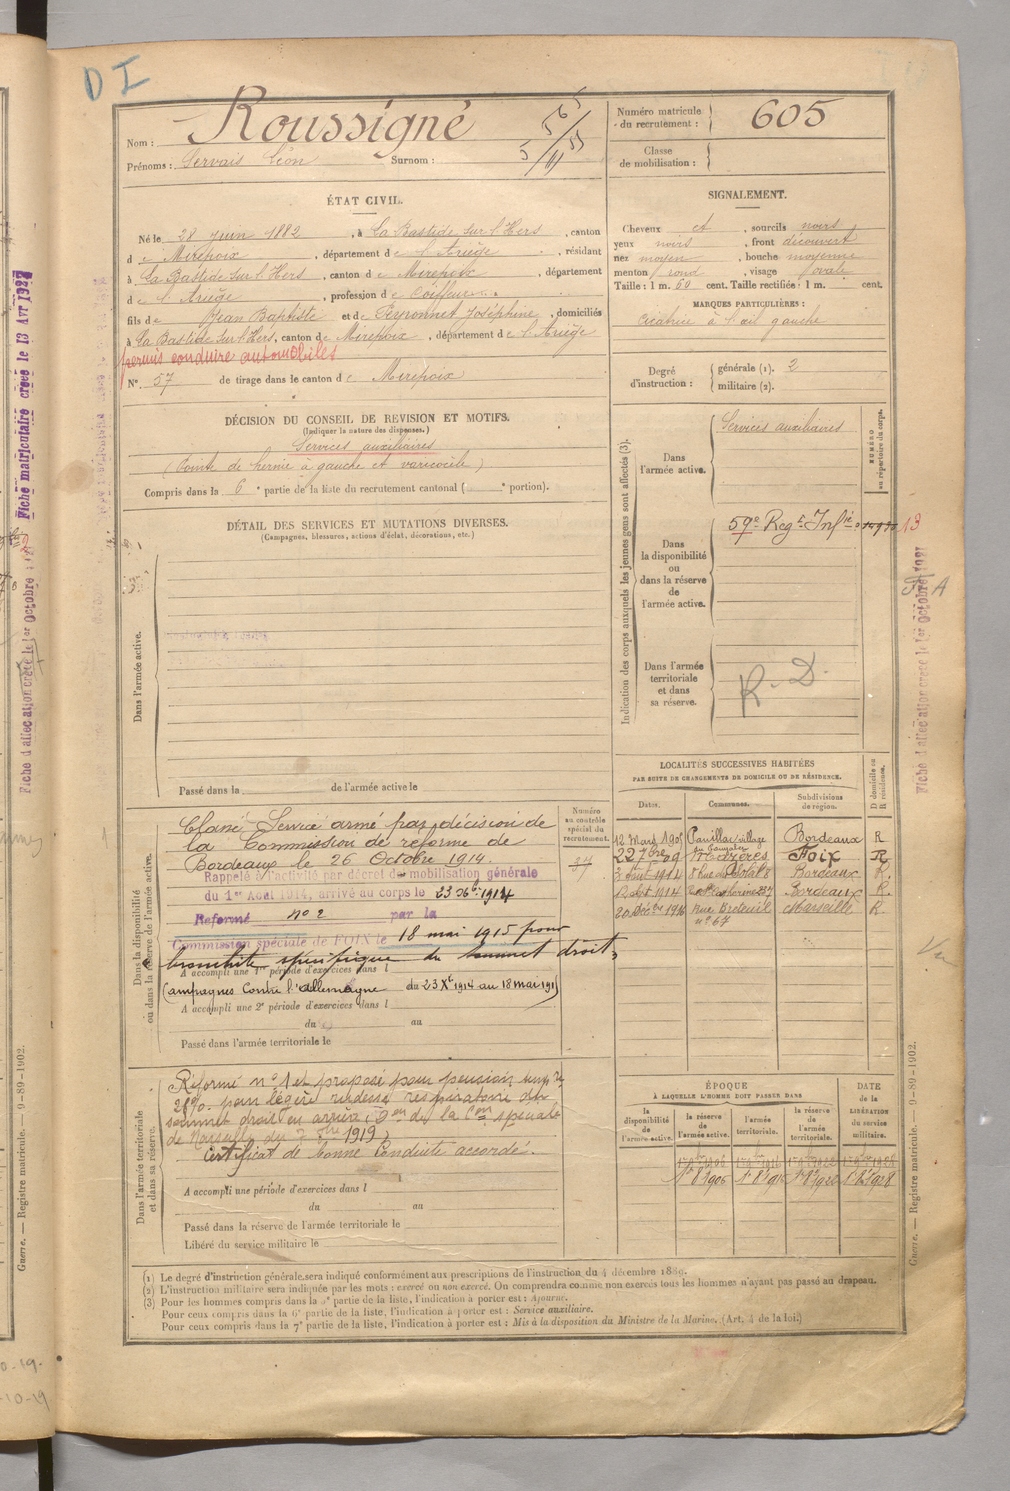 D I
Roussigné
Nom :
Prénoms : Gervais Léon Surnom :
Numéro matricule du recrutement : 605
Classe de mobilisation :
ÉTAT CIVIL.
Né le 28 juin 1882, à La Bastide sur l'Hers, canton
de Mirepoix, département de l'Ariège, résidant
à La Bastide sur l'Hers, canton de Mirepoix, département
de l'Ariège, profession de Coiffeur
fils de Jean Baptiste et de Peyronnet Joséphine, domiciliés
à La Bastide sur l'Hers, canton de Mirepoix, département de l'Ariège
permis conduire automobiles
N° 57 de tirage dans le canton de Mirepoix
SIGNALEMENT.
Cheveux et, sourcils noirs
yeux noirs, front découvert
nez moyen, bouche moyenne
menton rond, visage ovale
Taille : 1 m. 60 cent. Taille rectifiée : 1 m. cent.
MARQUES PARTICULIÈRES :
Cicatrice à l'œil gauche
Degré d'instruction : générale (1). 2
militaire (2).
DÉCISION DU CONSEIL DE REVISION ET MOTIFS.
(Indiquer la nature des dispenses.)
Services auxiliaires
(Pointe de hernie à gauche et varicocèle)
Compris dans la 6e partie de la liste du recrutement cantonal ( e portion).
DÉTAIL DES SERVICES ET MUTATIONS DIVERSES.
(Campagnes, blessures, actions d'éclat, décorations, etc.)
Dans l'armée active.
Passé dans la de l'armée active le
Indication des corps auxquels les jeunes gens sont affectés (3).
Dans l'armée active.
Services auxiliaires
NUMÉRO au répertoire du corps.
Dans la disponibilité ou dans la réserve de l'armée active.
59e Regt Infie
13
Dans l'armée territoriale et dans sa réserve.
R. D.
Fiche matriculaire créée le 13 Avr 1927
Fiche d'affectation créée le 1er Octobre 1927
Fiche d'affectation créée le 1er Octobre 1927
Dans la disponibilité ou dans la réserve de l'armée active.
Numéro au contrôle spécial du recrutement.
Classé Service armé par décision de
la Commission de réforme de
Bordeaux le 26 Octobre 1914.
Rappelé à l'activité par décret de mobilisation générale
du 1er Août 1914, arrivé au corps le 23 Xbre 1914
Réformé n° 2 par la
Commission spéciale de FOIX le 18 mai 1915 pour
bronchite spécifique du sommet droit
A accompli une 1re période d'exercices dans l
Campagnes Contre l'Allemagne du 23 Xbre 1914 au 18 mai 191
A accompli une 2e période d'exercices dans l
du au
Passé dans l'armée territoriale le
LOCALITÉS SUCCESSIVES HABITÉES
PAR SUITE DE CHANGEMENTS DE DOMICILE OU DE RÉSIDENCE.
Dates. Communes. Subdivisions de région. D domicile ou R résidence.
12 Mars 190 Pauillac village Bordeaux R
22 7bre 09 Mazères Foix R
1914 Bordeaux R.
1914 Bordeaux R.
20 Décbre 1916 Rue Breteuil n° 67 Marseille R.
Dans l'armée territoriale et dans sa réserve.
Réformé n° 1 et proposé pour pension tempre
20% pour légère rudesse respiratoire du
sommet droit en arrière, Don de la Con spéciale
de Marseille du 1919.
Certificat de bonne Conduite accordé.
A accompli une période d'exercices dans l
du au
Passé dans la réserve de l'armée territoriale le
Libéré du service militaire le
ÉPOQUE
À LAQUELLE L'HOMME DOIT PASSER DANS
la disponibilité de l'armée active. la réserve de l'armée active. l'armée territoriale. la réserve de l'armée territoriale.
DATE de la LIBÉRATION du service militaire.
Guerre. — Registre matricule. — 9-89-1902.
Guerre. — Registre matricule. — 9-89-1902.
(1) Le degré d'instruction générale sera indiqué conformément aux prescriptions de l'instruction du 4 décembre 1889.
(2) L'instruction militaire sera indiquée par les mots : exercé ou non exercé. On comprendra comme non exercés tous les hommes n'ayant pas passé au drapeau.
(3) Pour les hommes compris dans la 5e partie de la liste, l'indication à porter est : Ajourné.
Pour ceux compris dans la 6e partie de la liste, l'indication à porter est : Service auxiliaire.
Pour ceux compris dans la 7e partie de la liste, l'indication à porter est : Mis à la disposition du Ministre de la Marine. (Art. 4 de la loi.)